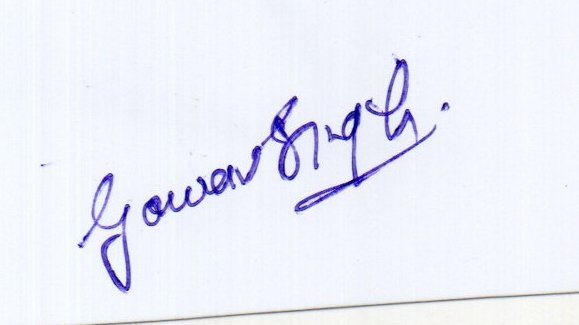 Gaurav Singh.